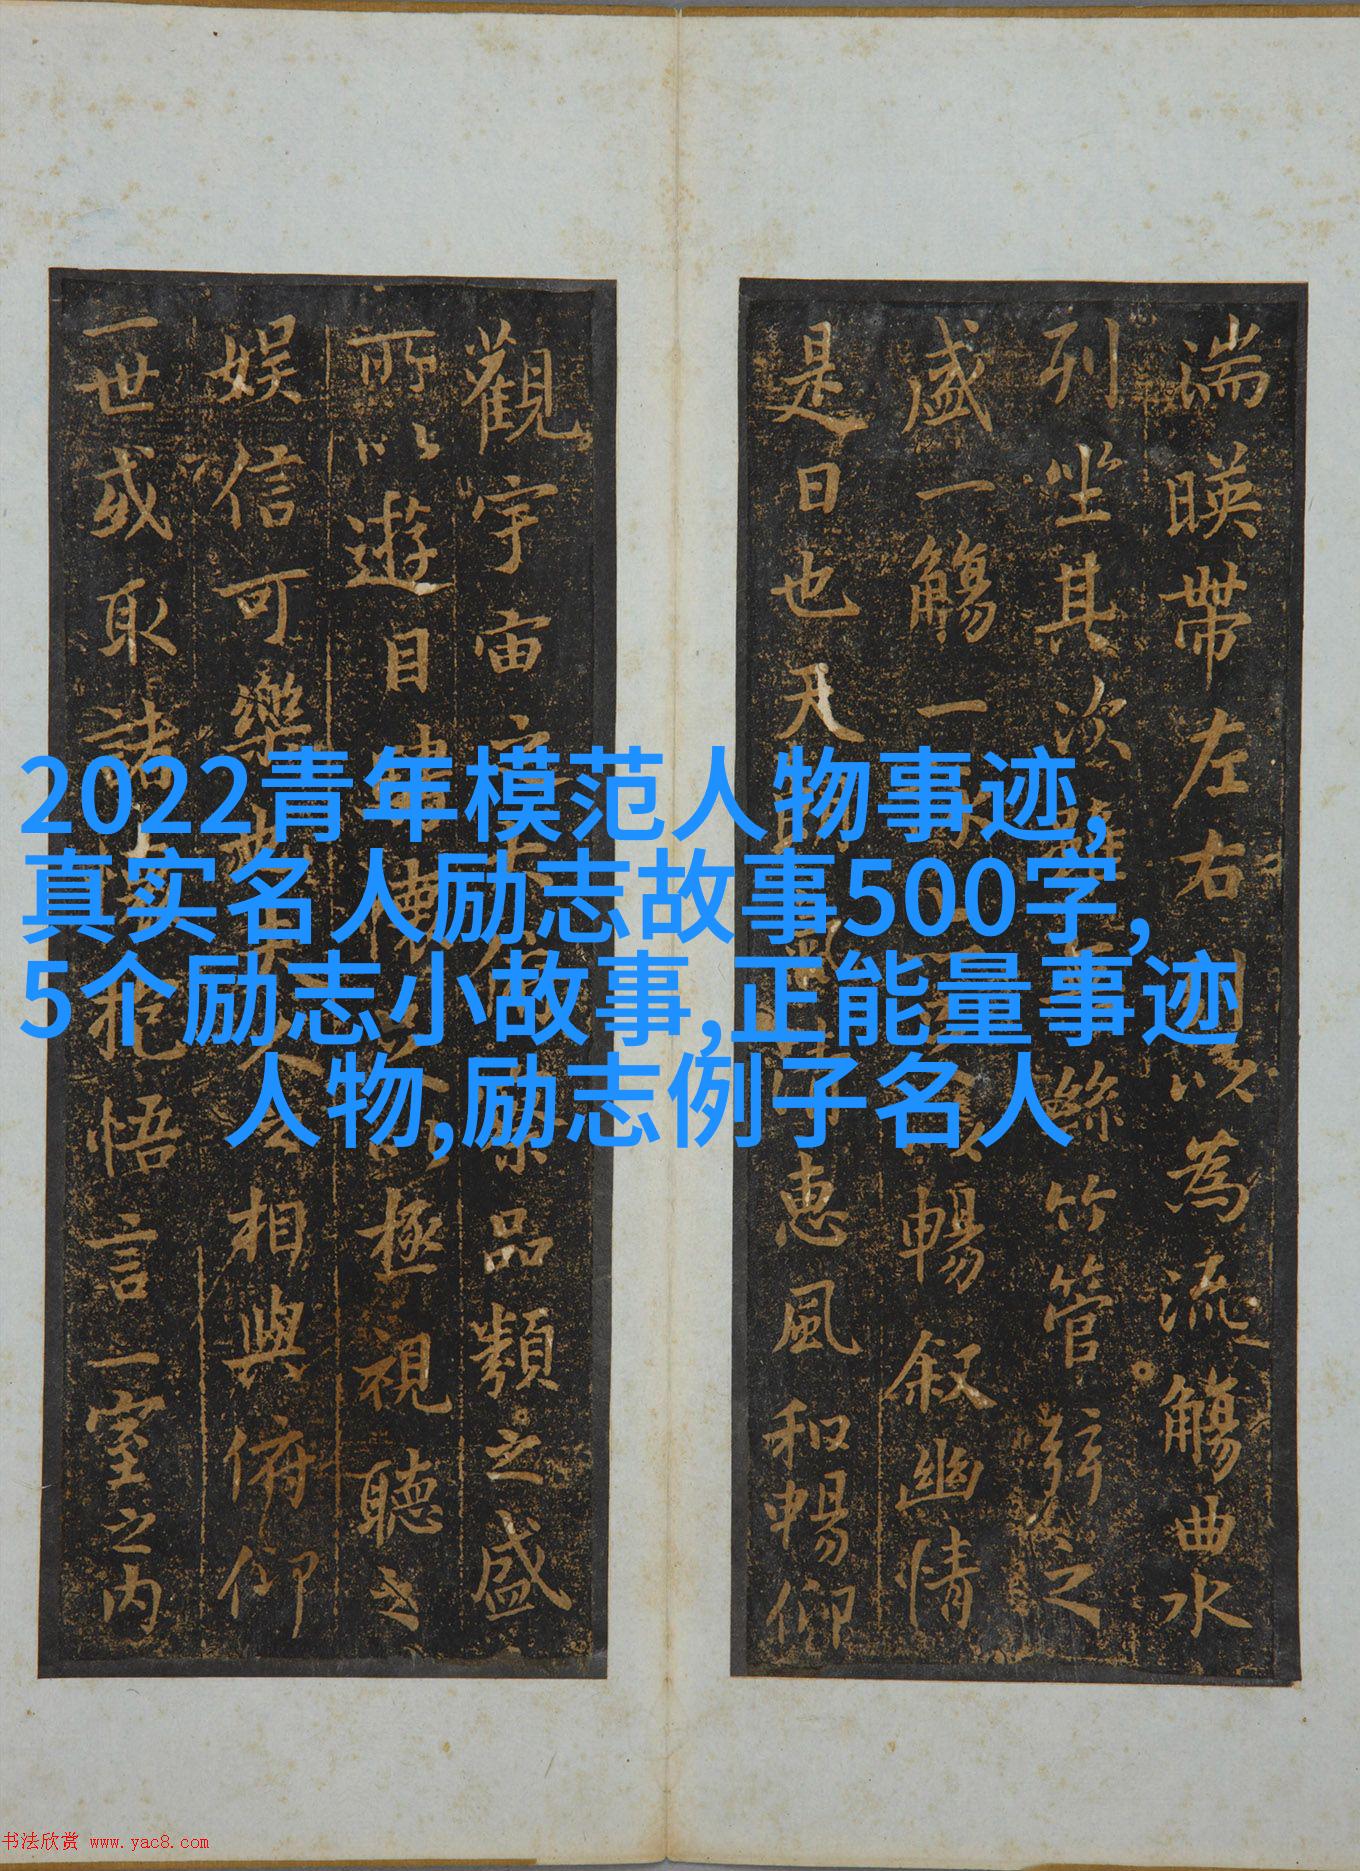 2022青年模范人物事迹,
真实名人励志故事500字,
5个励志小故事,正能量事迹
人物,励志例子名人
湍暎帶左右 為流觴曲水
列坐其次 絲竹管弦之
盛一觴一 暢叙幽情
是日也天 惠風和暢仰
觀宇宙 品類之盛
所以遊目 極視聽之
娱信可樂 相與俯仰
一世或取諸 悟言一室之内
书法欣赏 www.yac8.com